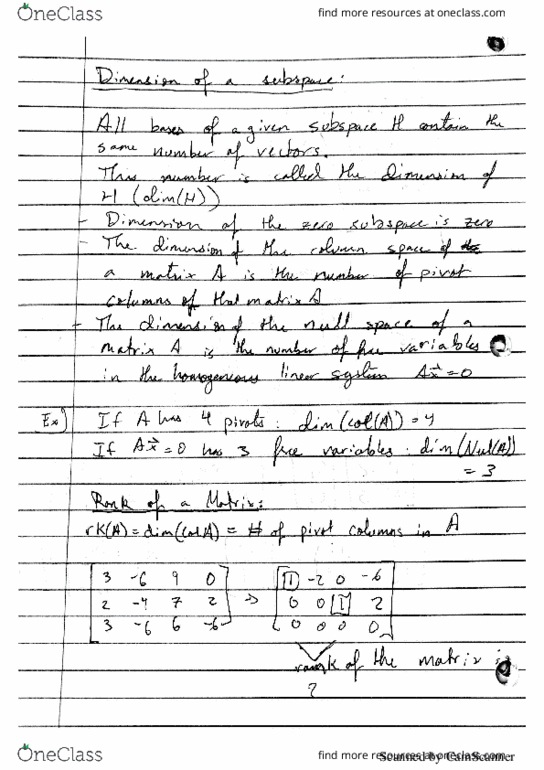 OneClass
find more resources at oneclass.com
Dimension of a subspace:
All bases of a given subspace H contain the
same number of vectors.
This number is called the dimension of
H (dim(H))
- Dimension of the zero subspace is zero
- The dimension of the column space of
a matrix A is the number of pivot
columns of that matrix A
- The dimension of the null space of a
matrix A is the number of free variables
in the homogeneous linear system Ax⃗=0
Ex) If A has 4 pivots: dim(col(A))=4
If Ax⃗=0 has 3 free variables: dim(Nul(A))
=3
Rank of a Matrix:
rK(A)=dim(colA)= # of pivot columns in A
3 -6 9 0 1 -2 0 -6
2 -4 7 2 => 0 0 1 2
3 -6 6 -6 0 0 0 0
rank of the matrix is
2
OneClass
find more resources at oneclass.com
Scanned by CamScanner